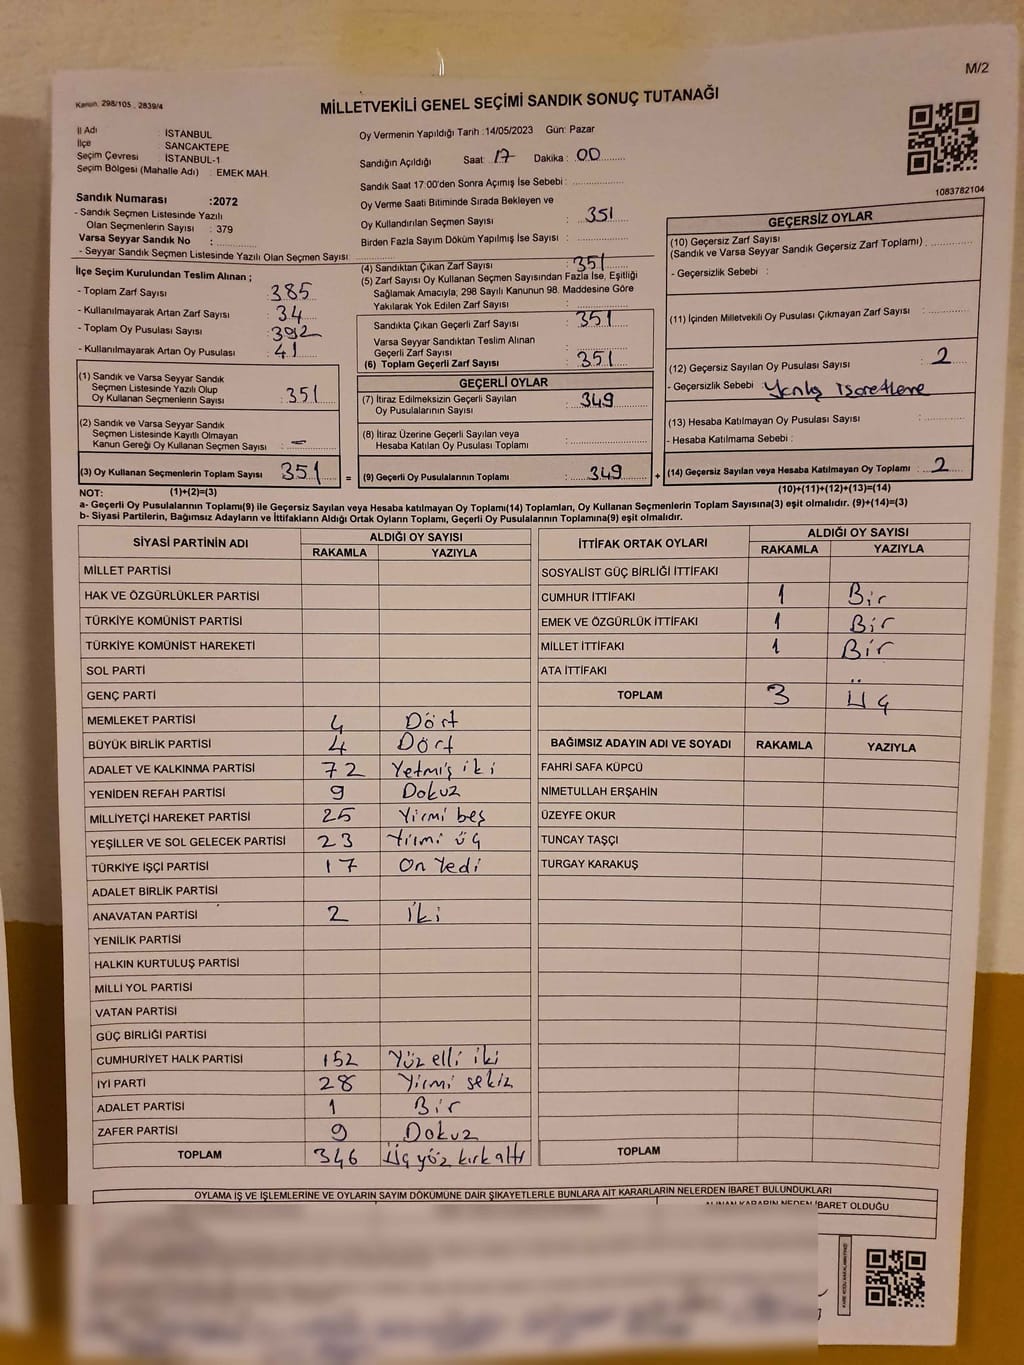 M/2
Kanun. 298/105 . 2839/4
MİLLETVEKİLİ GENEL SEÇİMİ SANDIK SONUÇ TUTANAĞI
İl Adı : İSTANBUL
İlçe : SANCAKTEPE
Seçim Çevresi : İSTANBUL-1
Seçim Bölgesi (Mahalle Adı) : EMEK MAH.
Sandık Numarası :2072
- Sandık Seçmen Listesinde Yazılı
Olan Seçmenlerin Sayısı : 379
Varsa Seyyar Sandık No :
- Seyyar Sandık Seçmen Listesinde Yazılı Olan Seçmen Sayısı:
Oy Vermenin Yapıldığı Tarih :14/05/2023 Gün: Pazar
Sandığın Açıldığı Saat: 17 Dakika : 00
Sandık Saat 17:00'den Sonra Açımış İse Sebebi :
Oy Verme Saati Bitiminde Sırada Bekleyen ve
Oy Kullandırılan Seçmen Sayısı : 351
Birden Fazla Sayım Döküm Yapılmış İse Sayısı :
1083782104
İlçe Seçim Kurulundan Teslim Alınan ;
- Toplam Zarf Sayısı : 385
- Kullanılmayarak Artan Zarf Sayısı : 34
- Toplam Oy Pusulası Sayısı : 392
- Kullanılmayarak Artan Oy Pusulası : 41
(1) Sandık ve Varsa Seyyar Sandık
Seçmen Listesinde Yazılı Olup
Oy Kullanan Seçmenlerin Sayısı : 351
(2) Sandık ve Varsa Seyyar Sandık
Seçmen Listesinde Kayıtlı Olmayan
Kanun Gereği Oy Kullanan Seçmen Sayısı : -
(3) Oy Kullanan Seçmenlerin Toplam Sayısı : 351 =
(4) Sandıktan Çıkan Zarf Sayısı : 351
(5) Zarf Sayısı Oy Kullanan Seçmen Sayısından Fazla İse, Eşitliği
Sağlamak Amacıyla; 298 Sayılı Kanunun 98. Maddesine Göre
Yakılarak Yok Edilen Zarf Sayısı :
Sandıkta Çıkan Geçerli Zarf Sayısı : 351
Varsa Seyyar Sandıktan Teslim Alınan
Geçerli Zarf Sayısı :
(6) Toplam Geçerli Zarf Sayısı : 351
GEÇERLİ OYLAR
(7) İtiraz Edilmeksizin Geçerli Sayılan
Oy Pusulalarının Sayısı : 349
(8) İtiraz Üzerine Geçerli Sayılan veya
Hesaba Katılan Oy Pusulası Toplamı :
(9) Geçerli Oy Pusulalarının Toplamı : 349 +
GEÇERSİZ OYLAR
(10) Geçersiz Zarf Sayısı
(Sandık ve Varsa Seyyar Sandık Geçersiz Zarf Toplamı) :
- Geçersizlik Sebebi :
(11) İçinden Milletvekili Oy Pusulası Çıkmayan Zarf Sayısı :
(12) Geçersiz Sayılan Oy Pusulası Sayısı : 2
- Geçersizlik Sebebi : Yanlış isaretleme
(13) Hesaba Katılmayan Oy Pusulası Sayısı :
- Hesaba Katılmama Sebebi :
(14) Geçersiz Sayılan veya Hesaba Katılmayan Oy Toplamı : 2
NOT: (1)+(2)=(3)
(10)+(11)+(12)+(13)=(14)
a- Geçerli Oy Pusulası Toplamı(9) ile Geçersiz Sayılan veya Hesaba katılmayan Oy Toplamı(14) Toplamları, Oy Kullanan Seçmenlerin Toplam Sayısına(3) eşit olmalıdır. (9)+(14)=(3)
b- Siyasi Partilerin, Bağımsız Adayların ve İttifakların Aldığı Ortak Oyların Toplamı, Geçerli Oy Pusulalarının Toplamına(9) eşit olmalıdır.
SİYASİ PARTİNİN ADI ALDIĞI OY SAYISI
RAKAMLA YAZIYLA
MİLLET PARTİSİ
HAK VE ÖZGÜRLÜKLER PARTİSİ
TÜRKİYE KOMÜNİST PARTİSİ
TÜRKİYE KOMÜNİST HAREKETİ
SOL PARTİ
GENÇ PARTİ
MEMLEKET PARTİSİ 4 Dört
BÜYÜK BİRLİK PARTİSİ 4 Dört
ADALET VE KALKINMA PARTİSİ 72 Yetmiş iki
YENİDEN REFAH PARTİSİ 9 Dokuz
MİLLİYETÇİ HAREKET PARTİSİ 25 Yirmi beş
YEŞİLLER VE SOL GELECEK PARTİSİ 23 Yirmi üç
TÜRKİYE İŞÇİ PARTİSİ 17 On Yedi
ADALET BİRLİK PARTİSİ
ANAVATAN PARTİSİ 2 iki
YENİLİK PARTİSİ
HALKIN KURTULUŞ PARTİSİ
MİLLİ YOL PARTİSİ
VATAN PARTİSİ
GÜÇ BİRLİĞİ PARTİSİ
CUMHURİYET HALK PARTİSİ 152 Yüz elli iki
İYİ PARTİ 28 Yirmi sekiz
ADALET PARTİSİ 1 Bir
ZAFER PARTİSİ 9 Dokuz
TOPLAM 346 Üç yöz kırk altı
İTTİFAK ORTAK OYLARI ALDIĞI OY SAYISI
RAKAMLA YAZIYLA
SOSYALİST GÜÇ BİRLİĞİ İTTİFAKI
CUMHUR İTTİFAKI 1 Bir
EMEK VE ÖZGÜRLÜK İTTİFAKI 1 Bir
MİLLET İTTİFAKI 1 Bir
ATA İTTİFAKI
TOPLAM 3 Üç
BAĞIMSIZ ADAYIN ADI VE SOYADI RAKAMLA YAZIYLA
FAHRİ SAFA KÜPCÜ
NİMETULLAH ERŞAHİN
ÜZEYFE OKUR
TUNCAY TAŞÇI
TURGAY KARAKUŞ
TOPLAM
OYLAMA İŞ VE İŞLEMLERİNE VE OYLARIN SAYIM DÖKÜMÜNE DAİR ŞİKAYETLERLE BUNLARA AİT KARARLARIN NELERDEN İBARET BULUNDUKLARI
ALINAN KARARIN NEDEN İBARET OLDUĞU